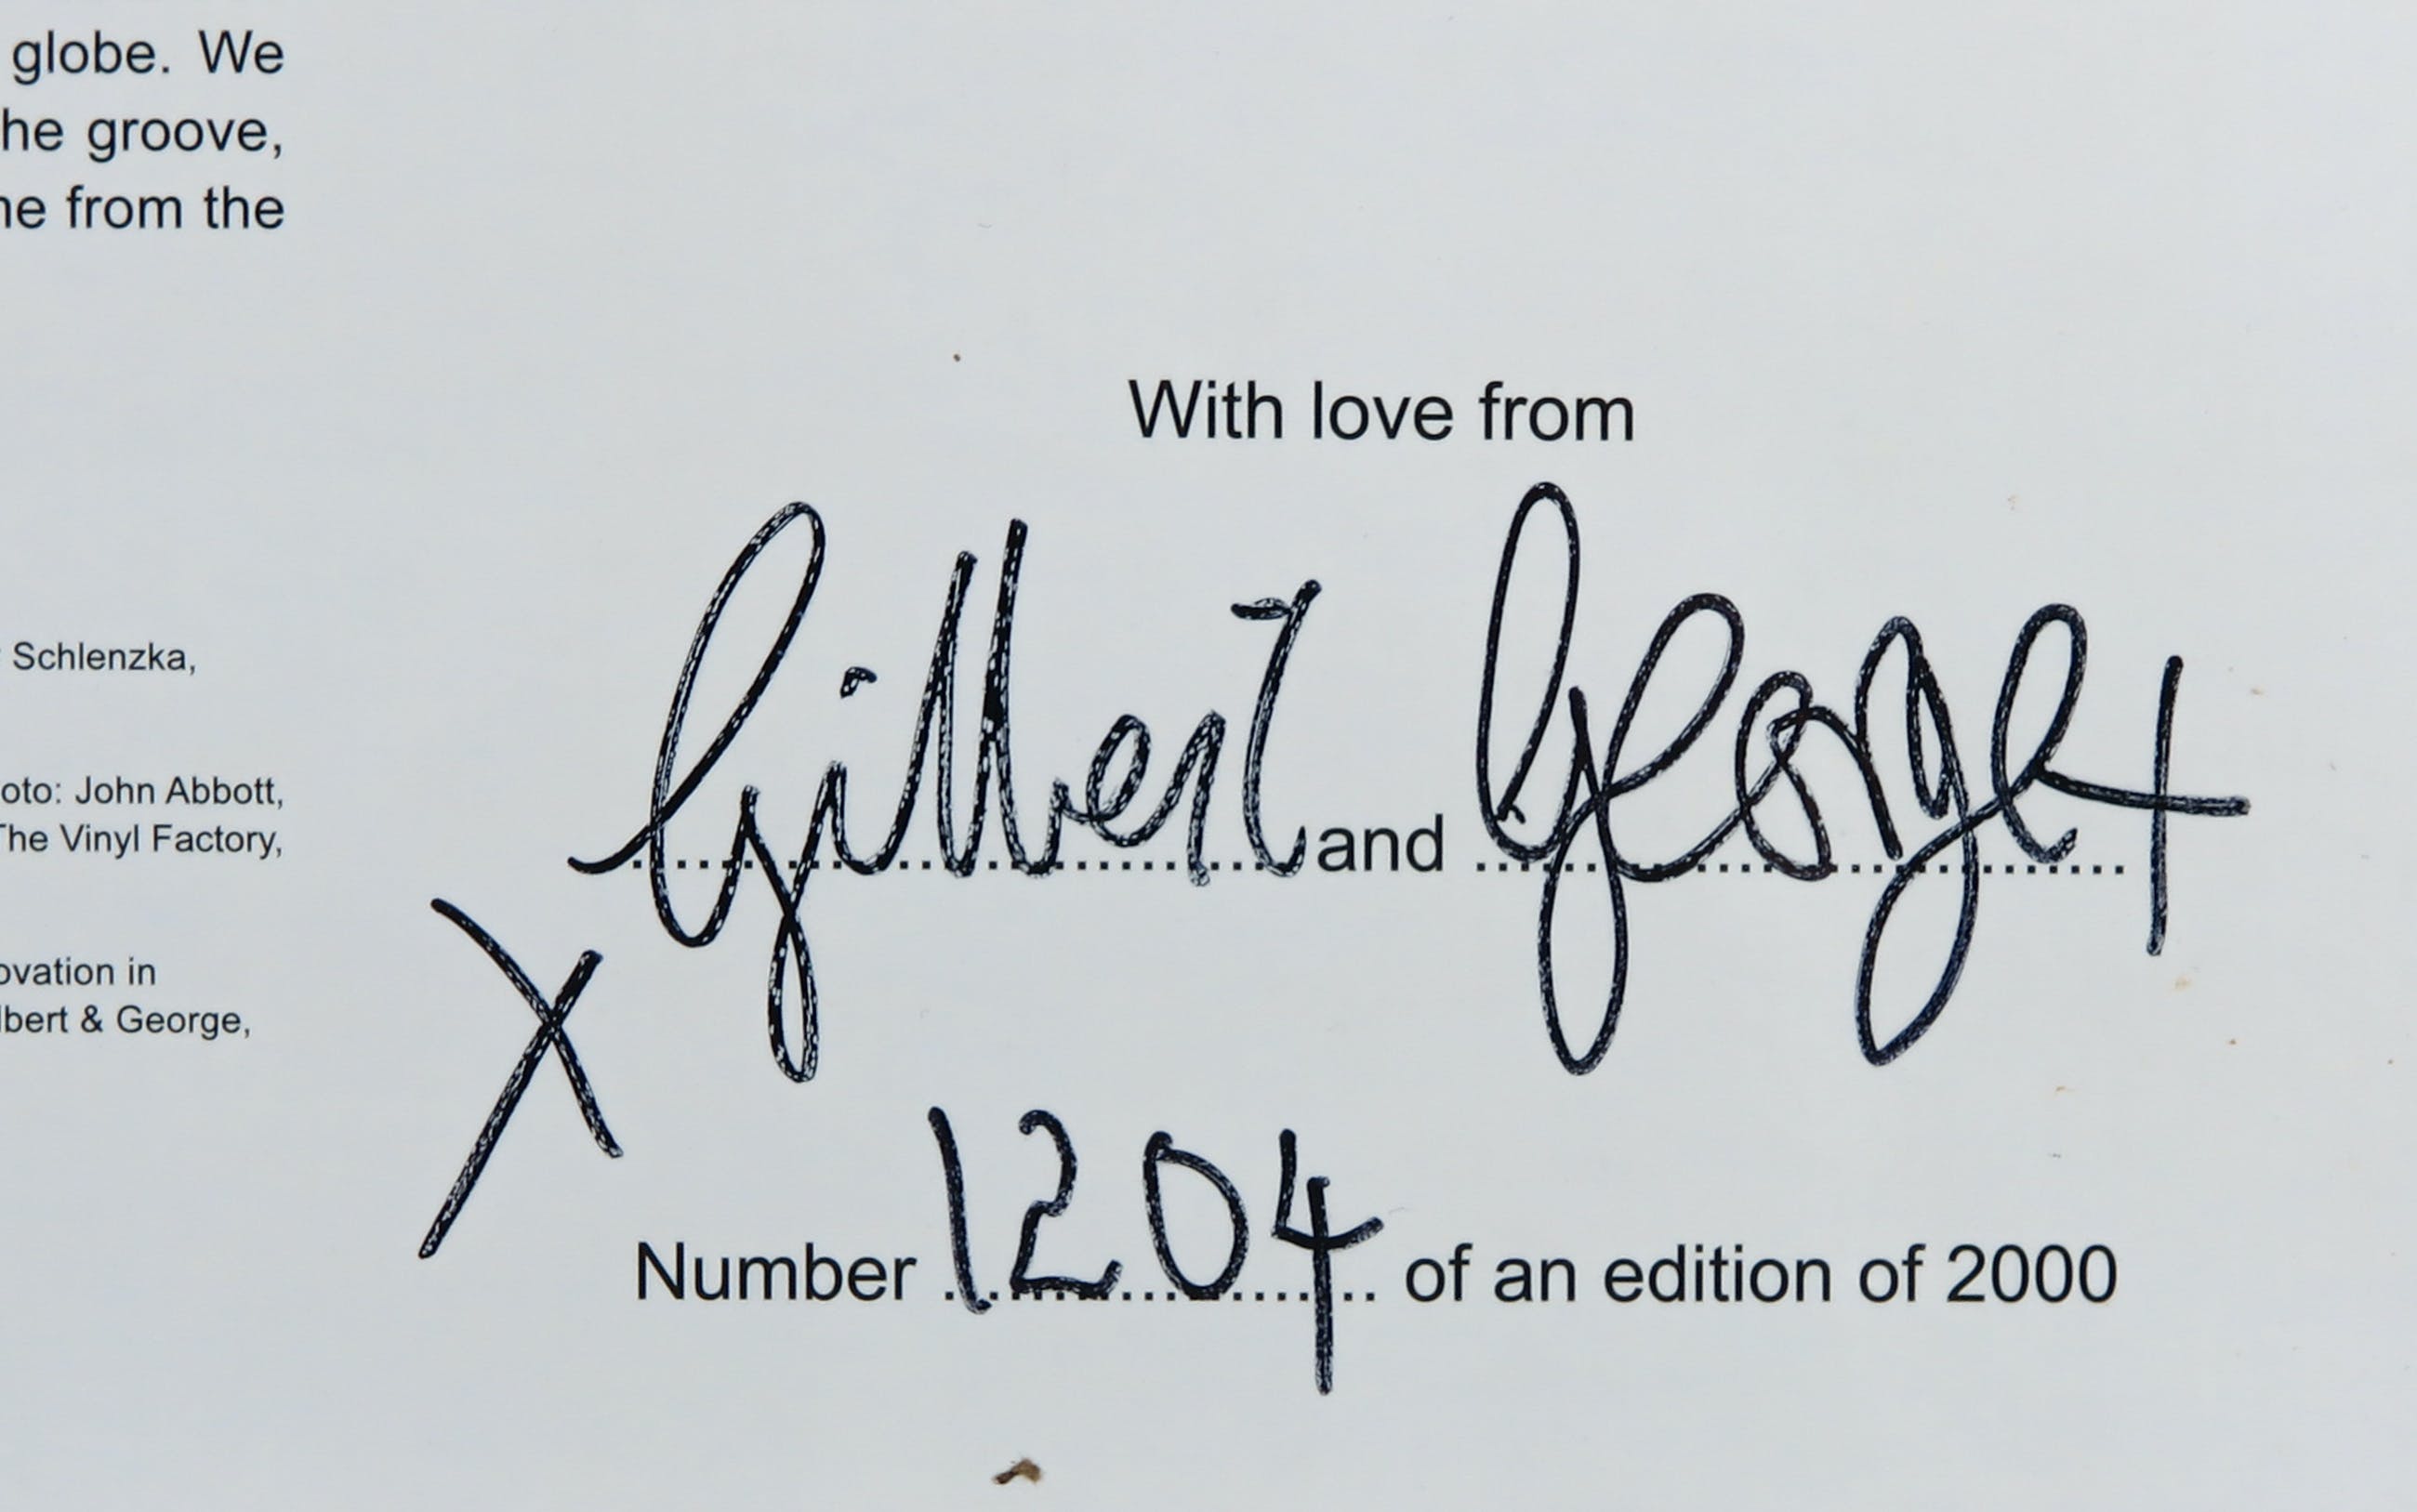 globe. We
he groove,
ne from the
With love from
Gilbert and George x
Schlenzka,
oto: John Abbott,
The Vinyl Factory,
ovation in
lbert & George,
X
Number 1204 of an edition of 2000